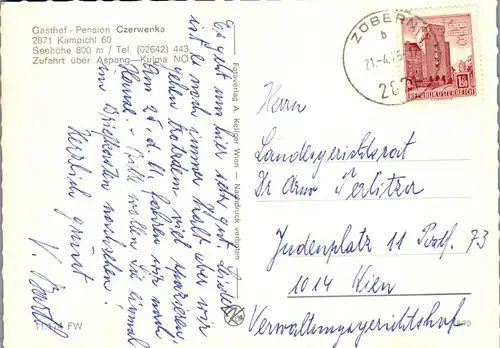 Gasthof - Pension Czerwenka
2871 Kampichl 60
Seehöhe 800 m / Tel. (02642) 443
Zufahrt über Aspang—Kulma NÖ
Es geht uns hier sehr gut. Leider
ist es noch immer kalt aber wir
gehen trotzdem viel spazieren.
Am 25. d. M. fahren wir nach
Hause. Bitte wollen Sie einmal
im Briefkasten nachsehen!
Herzlich grüsst
V.
FW
Fotoverlag A. Kellner Wien — Nachdruck verboten
ZÖBERN
b
21.-4.75
REPUBLIK ÖSTERREICH
Herrn
Landesgerichtsrat
Dr Arno Perlitzer
Judenplatz 11 Postf. 73
1014 Wien
Verwaltungsgerichtshof